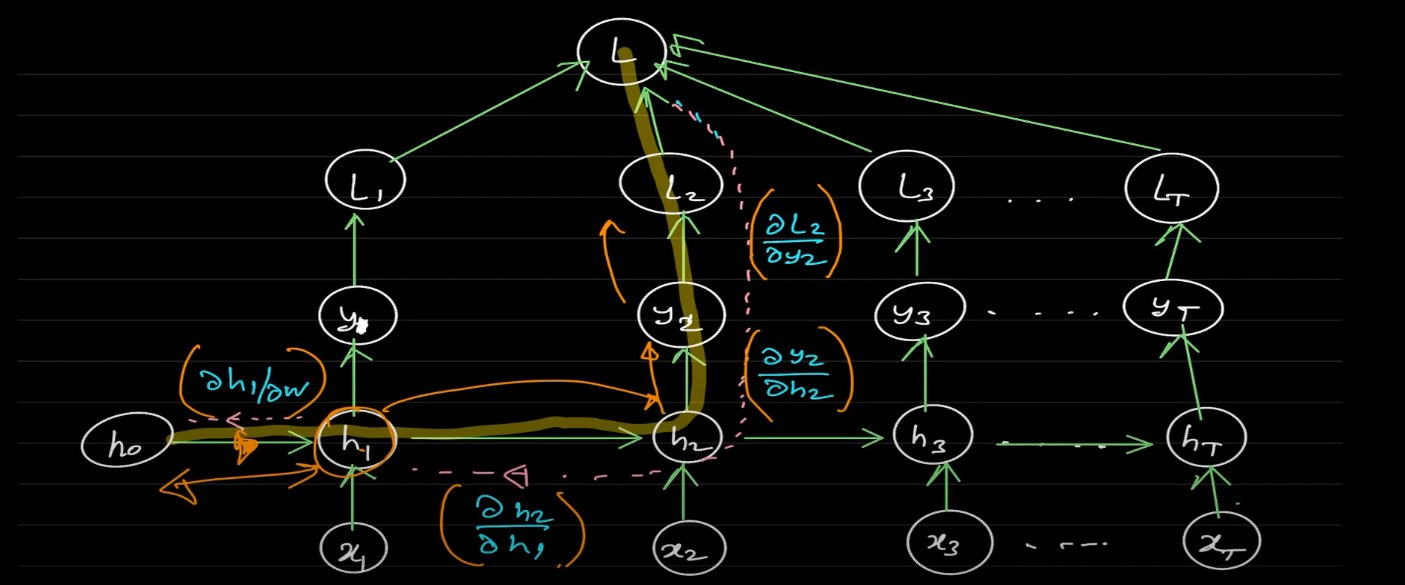 L
L1 L2 L3 . . . . LT
(∂L2/∂y2)
y y2 y3 . . . . . yT
(∂h1/∂w) (∂y2/∂h2)
h0 h1 h2 h3 . . . . hT
(∂h2/∂h1)
x1 x2 x3 - . - - - xT